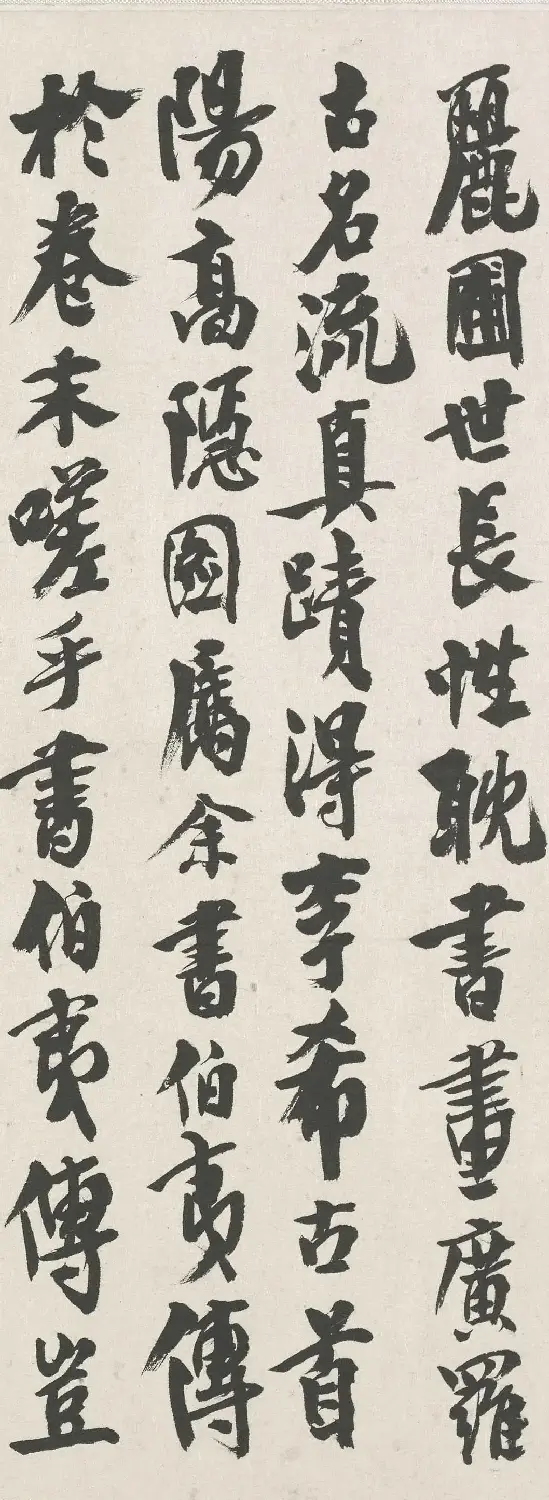 麗圃世長性耽書畫廣羅
古名流真蹟得李希古首
陽高隱圖屬余書伯夷傳
於卷末嗟乎書伯夷傳豈